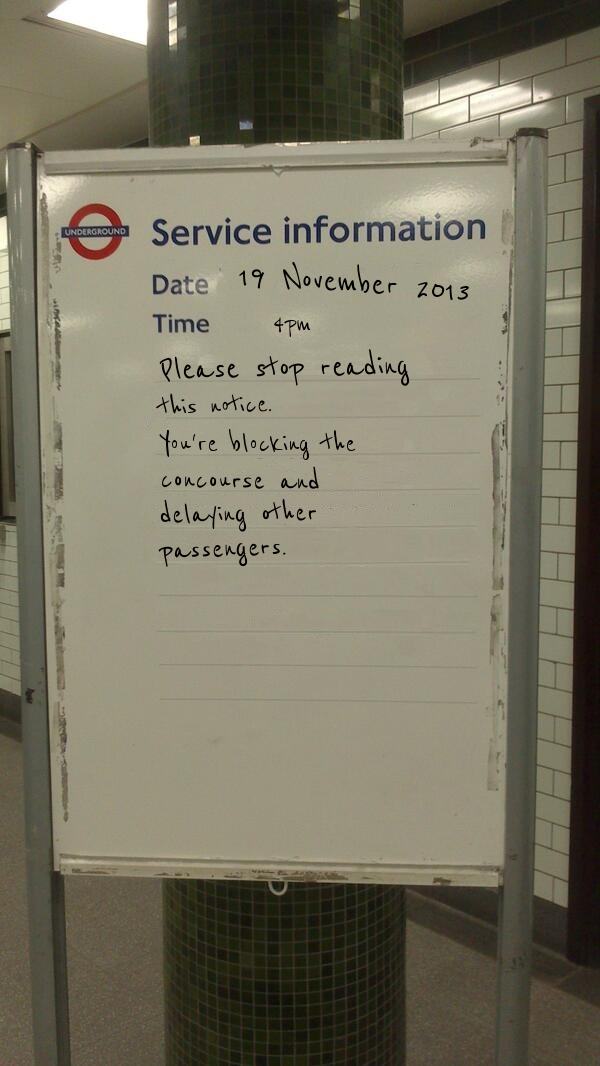 UNDERGROUND
Service information
Date 19 November 2013
Time 4pm
Please stop reading
this notice.
You're blocking the
concourse and
delaying other
passengers.